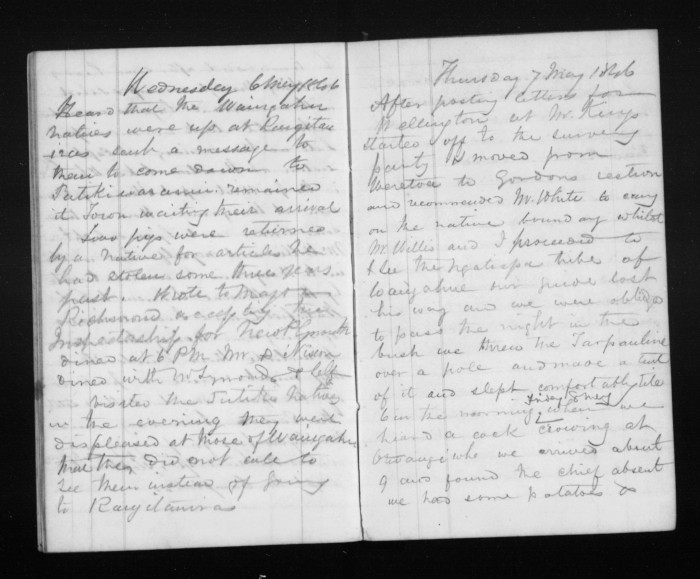 Wednesday 6 May 1846
Heard that the Waingahu
natives were up at Rangitau
iras sent a message to
them to come down to
Putikiwaranui remained
at Town waiting their arrival
Two pigs were returned
by a native for articles he
had stolen some three years
past. Wrote to Majr
Richmond accepting the
Inspectorship for New Plymouth
dined at 6 PM Mr Dixon
dined with Mr Symonds &
visited the Putiki natives
in the evening they were
displeased at those of Waingahu
that they did not come to
see them instead of going
to Rangitauiras
Thursday 7 May 1846
After posting letters for
Wellington at Mr Kings
started off to the survey
party & moved from
to Gordons section
and recommended Mr White to carry
on the native boundary whilst
Mr Wills and I proceeded to
see the Ngatipa tribe of
Waingahue our guide lost
his way and we were obliged
to pass the night in the
bush we threw the Tarpauline
over a pole and made a tent
of it and slept comfortably til
6 in the morning when we
Friday 8 May
heard a cock crowing at
we arrived about
9 and found the chief absent
we had some potatoes &